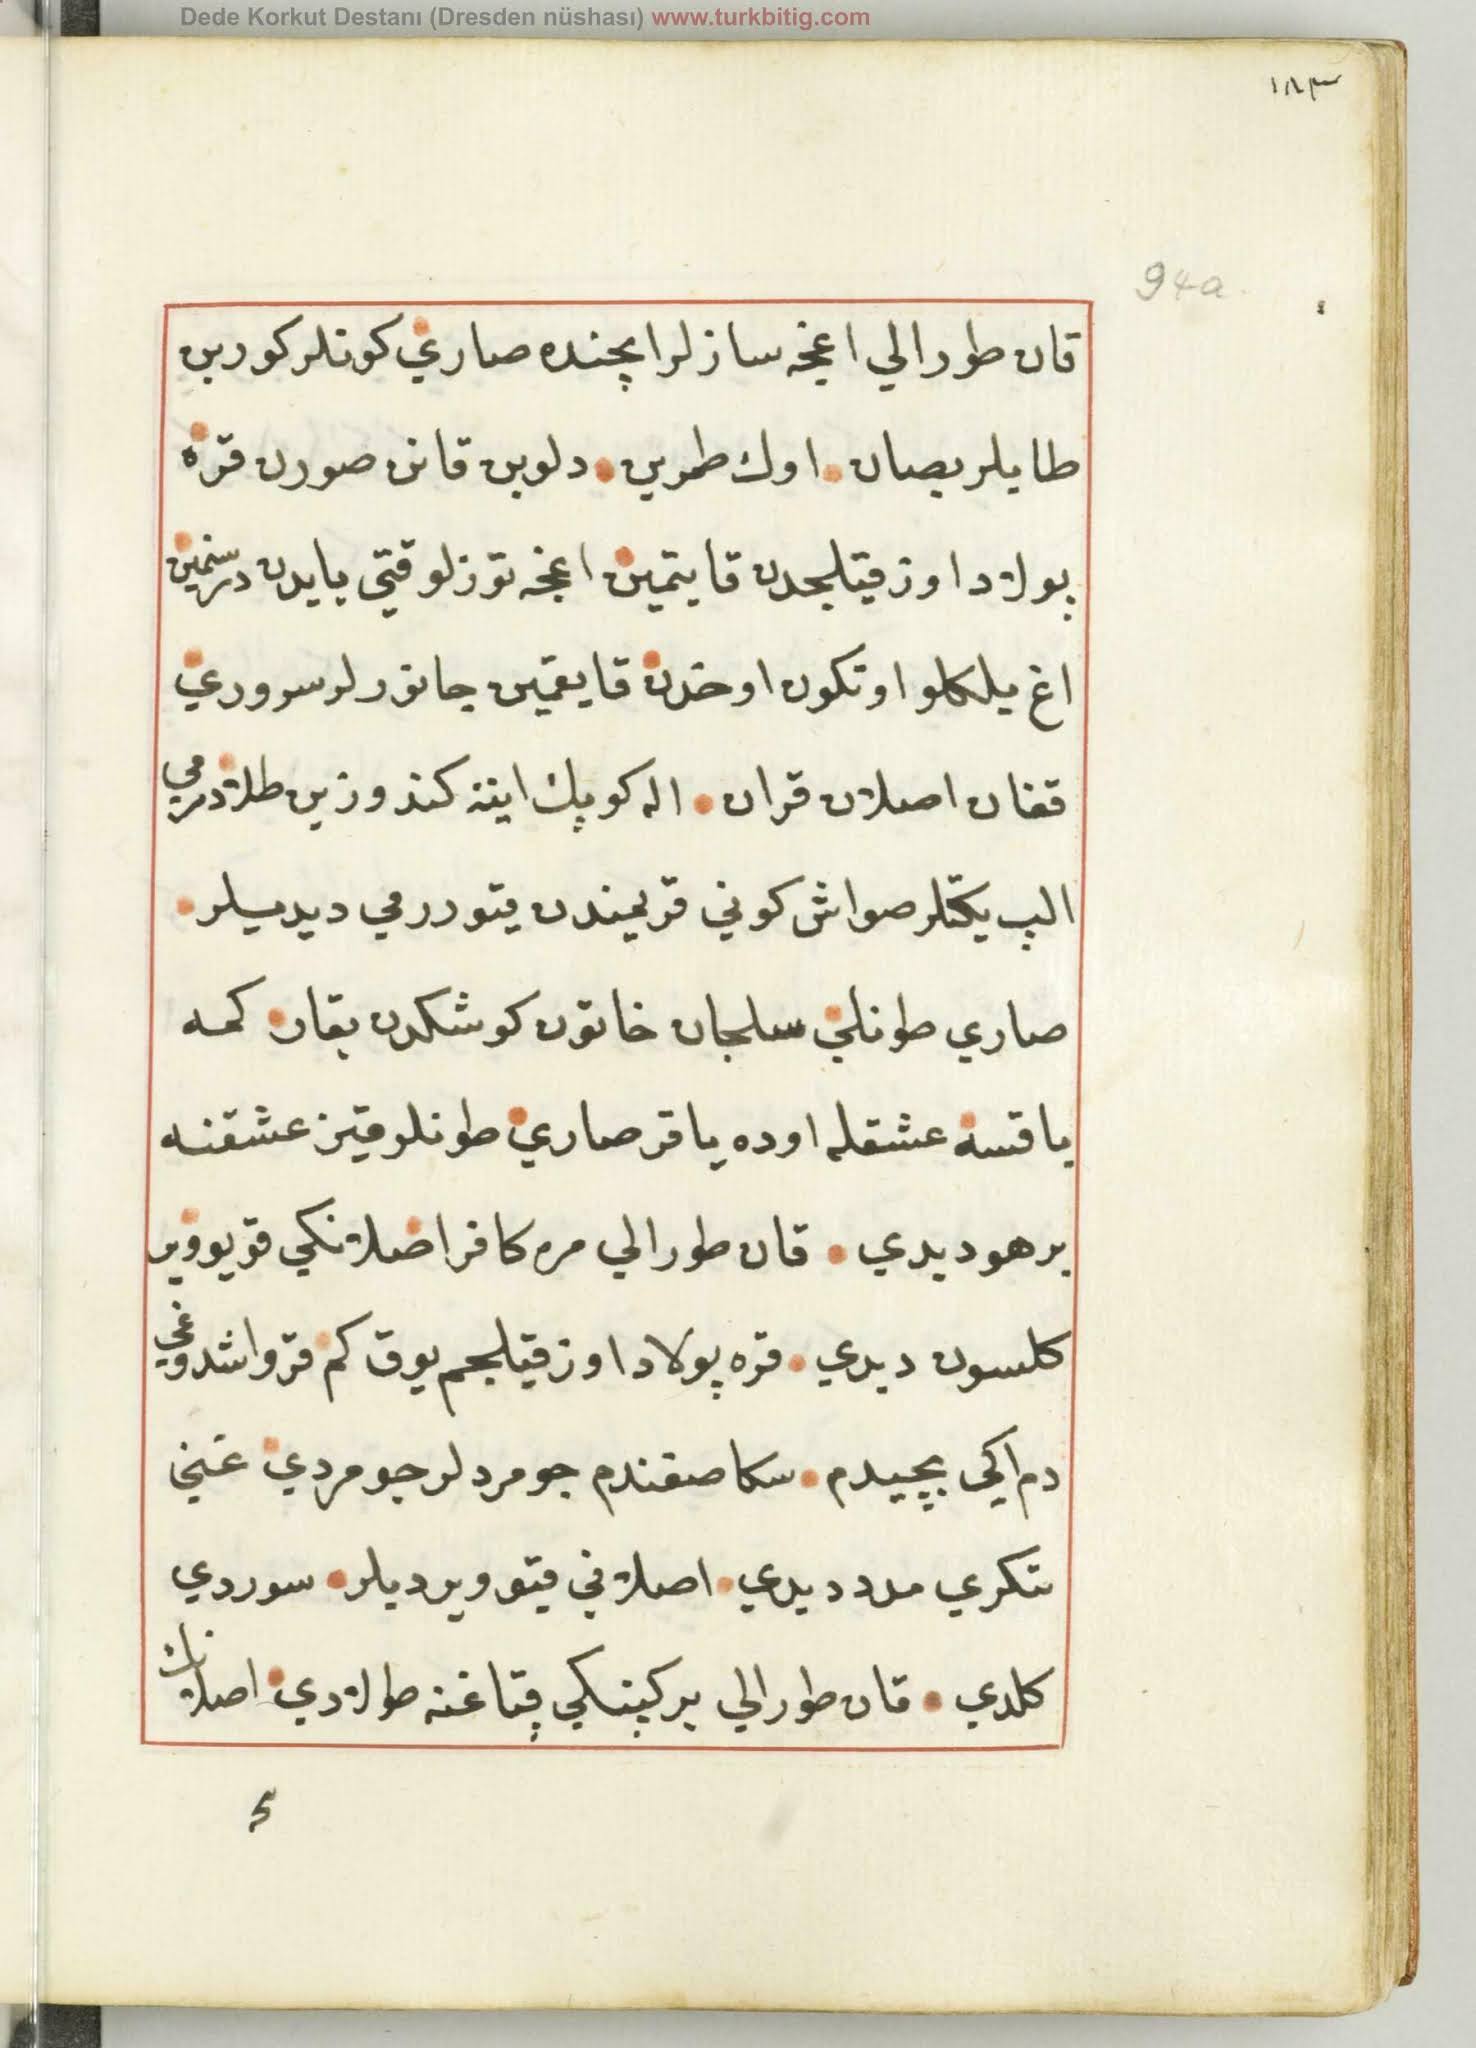 Dede Korkut Destanı (Dresden nüshası) www.turkbitig.com
١٨٣
94a
قان طورالي اغجه سازلر ايچنده صاري كونلر كورين
طايلر بصان اوك طمرين دلوبن قانن صورن قره
پولاد اوز قيلجدن قايتمين اغجه توزلو قتي يايدن درسنمين
اغ يلكلو اوتكون اوخدن قايقمين جانورلر سروري
قفان اصلان قران اله كوپك اينه كندوزين طلادرمي
الپ يكتلر صواش كوني قريمندن يتوررمي ديديلر
صاري طونلي سلجان خاتون كوشكدن بقار كمه
باقسه عشقله اوده ياقر صاري طونلو قيز عشقنه
بر هو ديدي قان طورالي مره كافر اصلانكي قويووير
كلسون ديدي قره پولاد اوز قيلجم يوق كم قرواشدوغي
دم ايكي بچيدم سكا صغندم جومردلر جومردي غني
تكري مدد ديدي اصلاني قيوويرديلر سوردي
كلدي قان طورالي بر كپنكي قتاغنه طولادي اصلانك